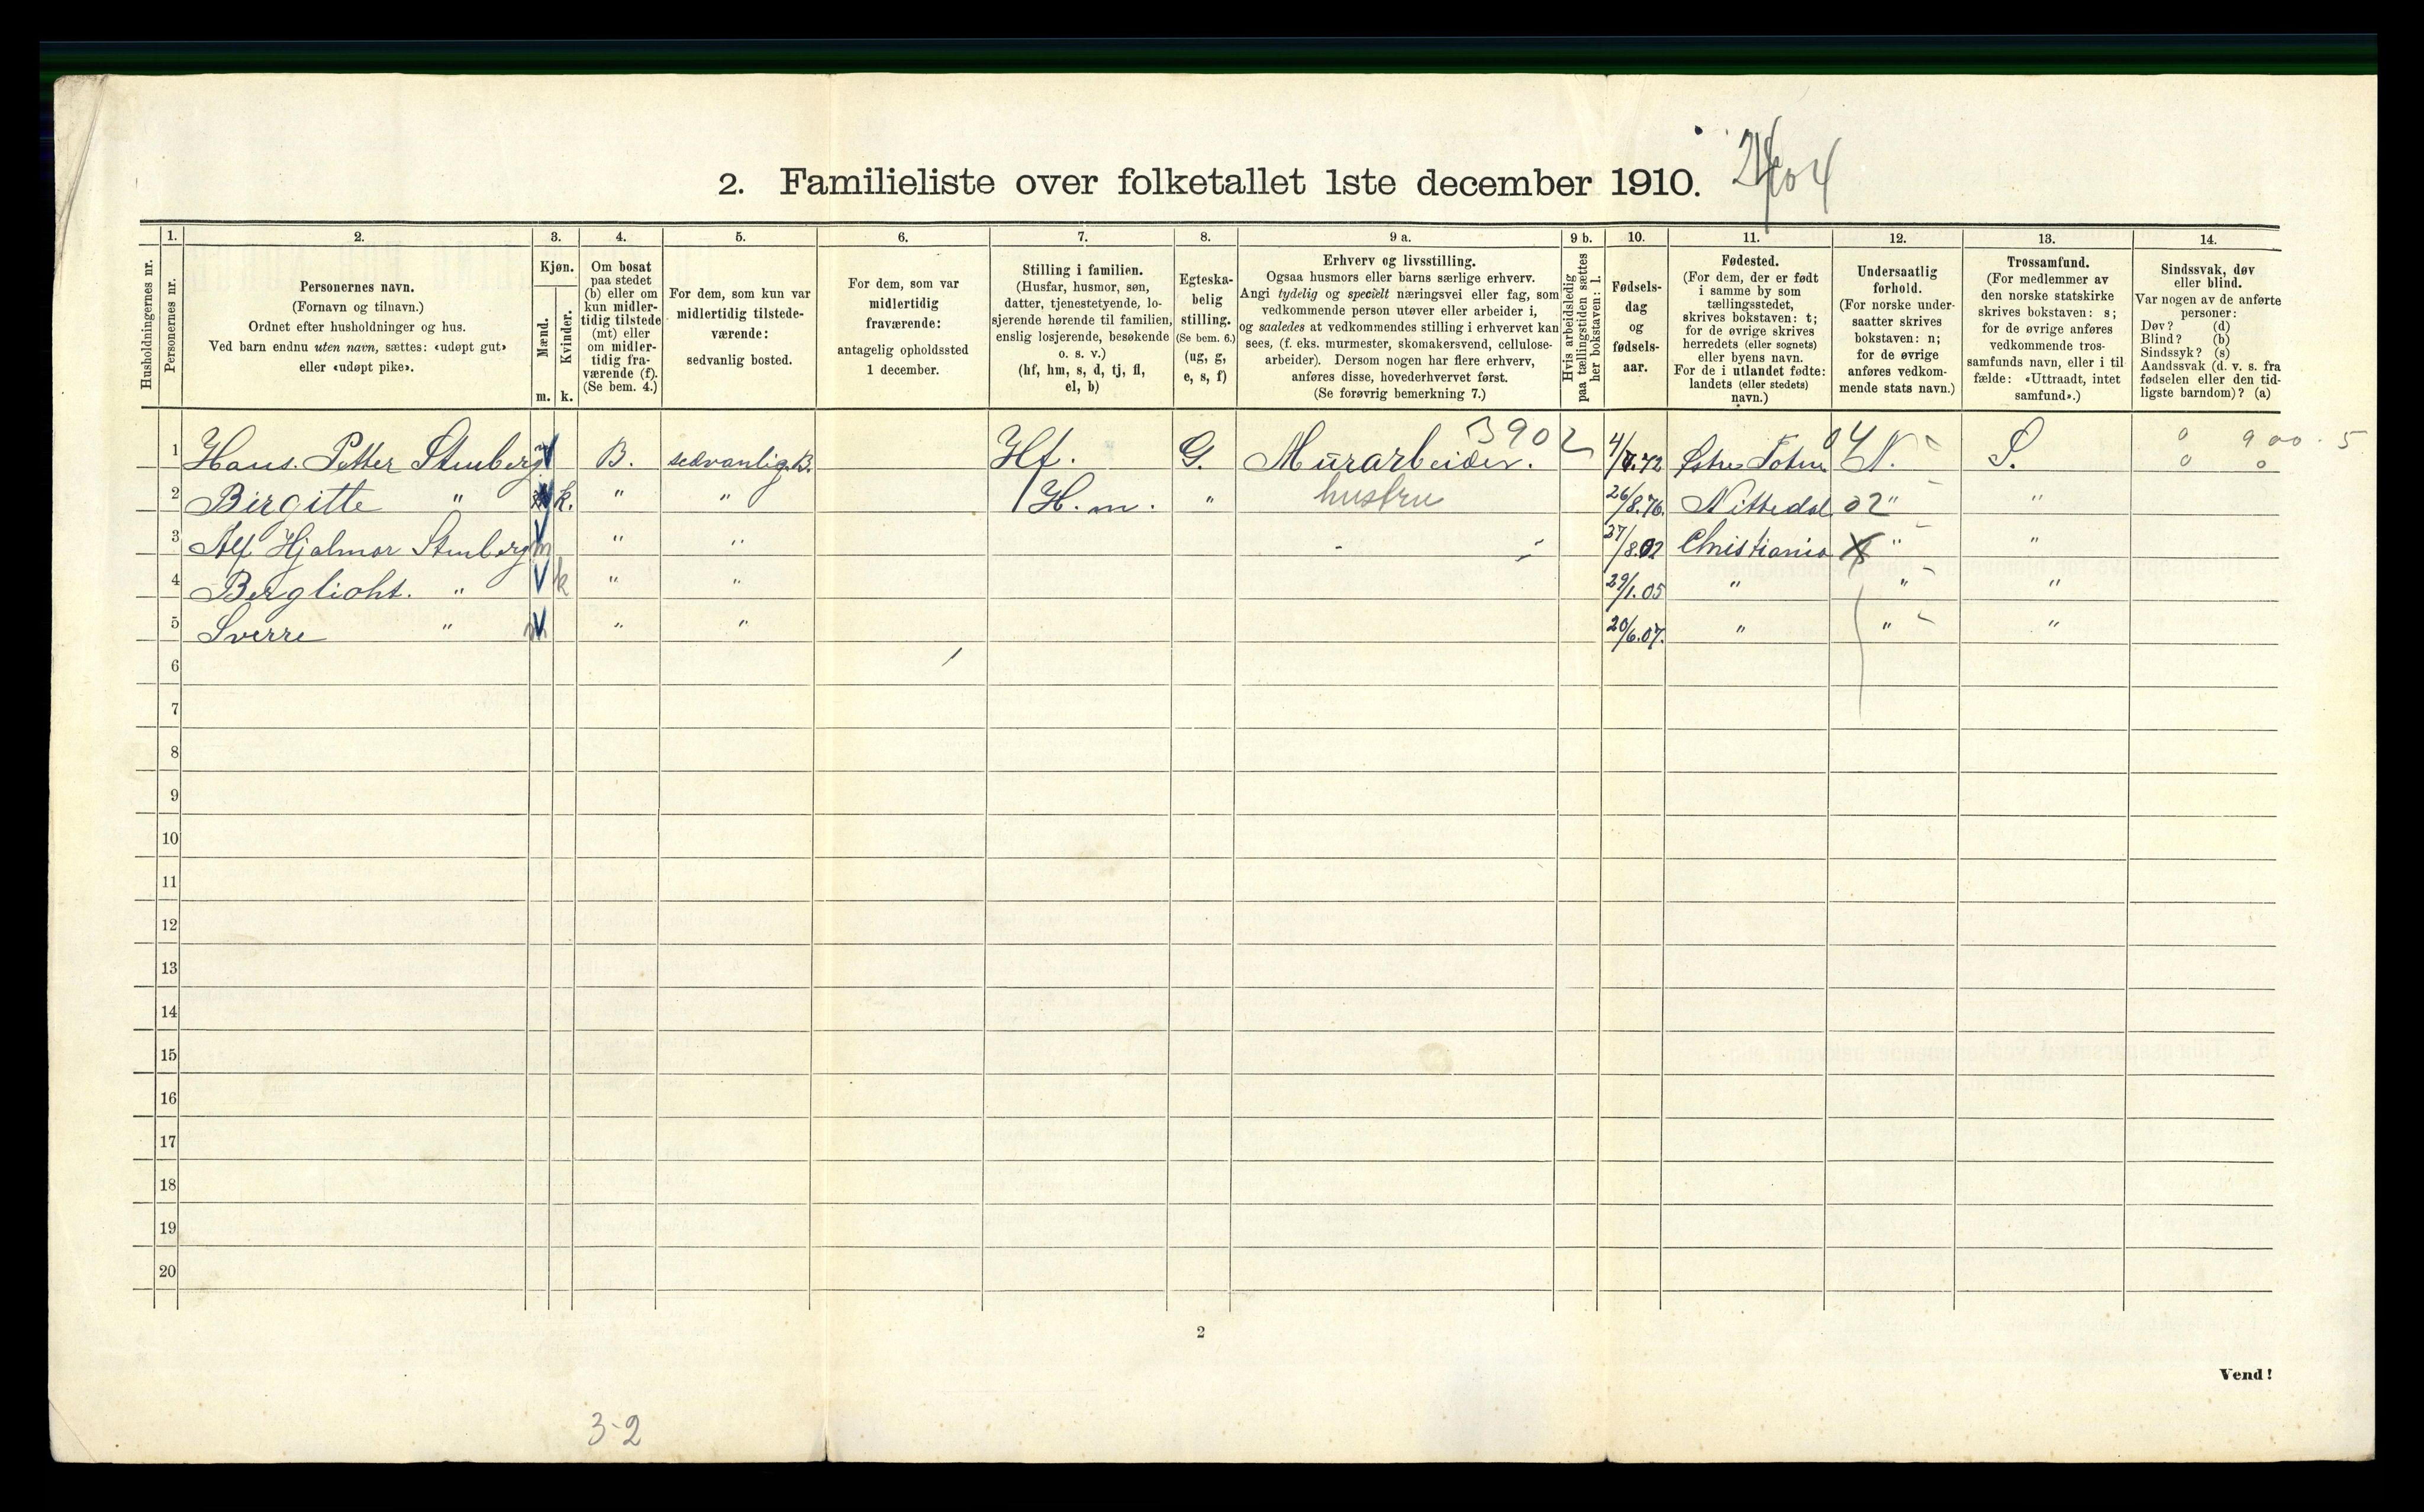 2. Familieliste over folketallet 1ste december 1910.
Husholdningernes nr.
1. Personernes nr.
2. Personernes navn.
(Fornavn og tilnavn.)
Ordnet efter husholdninger og hus.
Ved barn endnu uten navn, sættes: «udøpt gut»
eller «udøpt pike».
3. Kjøn.
Mænd. Kvinder.
m. k.
4. Om bosat
paa stedet
(b) eller om
kun midler-
tidig tilstede
(mt) eller
om midler-
tidig fra-
værende (f).
(Se bem. 4.)
5. For dem, som kun var
midlertidig tilstede-
værende:
sedvanlig bosted.
6. For dem, som var
midlertidig
fraværende:
antagelig opholdssted
1 december.
7. Stilling i familien.
(Husfar, husmor, søn,
datter, tjenestetyende, lo-
sjerende hørende til familien,
enslig losjerende, besøkende
o. s. v.)
(hf, hm, s, d, tj, fl,
el, b)
8. Egteska-
belig
stilling.
(Se bem. 6.)
(ug, g,
e, s, f)
9 a. Erhverv og livsstilling.
Ogsaa husmors eller barns særlige erhverv.
Angi tydelig og specielt næringsvei eller fag, som
vedkommende person utøver eller arbeider i,
og saaledes at vedkommendes stilling i erhvervet kan
sees, (f. eks. murmester, skomakersvend, cellulose-
arbeider). Dersom nogen har flere erhverv,
anføres disse, hovederhvervet først.
(Se forøvrig bemerkning 7.)
9 b. Hvis arbeidsledig
paa tællingstiden sættes
her bokstaven: l.
10. Fødsels-
dag
og
fødsels-
aar.
11. Fødested.
(For dem, der er født
i samme by som
tællingsstedet,
skrives bokstaven: t;
for de øvrige skrives
herredets (eller sognets)
eller byens navn.
For de i utlandet fødte:
landets (eller stedets)
navn.)
12. Undersaatlig
forhold.
(For norske under-
saatter skrives
bokstaven: n;
for de øvrige
anføres vedkom-
mende stats navn.)
13. Trossamfund.
(For medlemmer av
den norske statskirke
skrives bokstaven: s;
for de øvrige anføres
vedkommende tros-
samfunds navn, eller i til
fælde: «Uttraadt, intet
samfund».)
14. Sindssvak, døv
eller blind.
Var nogen av de anførte
personer:
Døv? (d)
Blind? (b)
Sindssyk? (s)
Aandssvak (d. v. s. fra
fødselen eller den tid-
ligste barndom)? (a)
1 Hans. Petter Stenberg m B. sedvanlig.B. Hf. G. Murarbeider. 3902 Østre Toten 04 N. S. 0 900.5
2 Birgitte " k. " " H.m. " hustru 26/8.76. Nittedal 02 " "
3 Alf Hjalmar Stenberg m " " 27/8.02 Christiania " "
4 Berglioht. " k " " 29/1.05 " " "
5 Sverre " m " " 20/6.07. " " "
6
7
8
9
10
11
12
13
14
15
16
17
18
19
20
2
Vend!
3-2